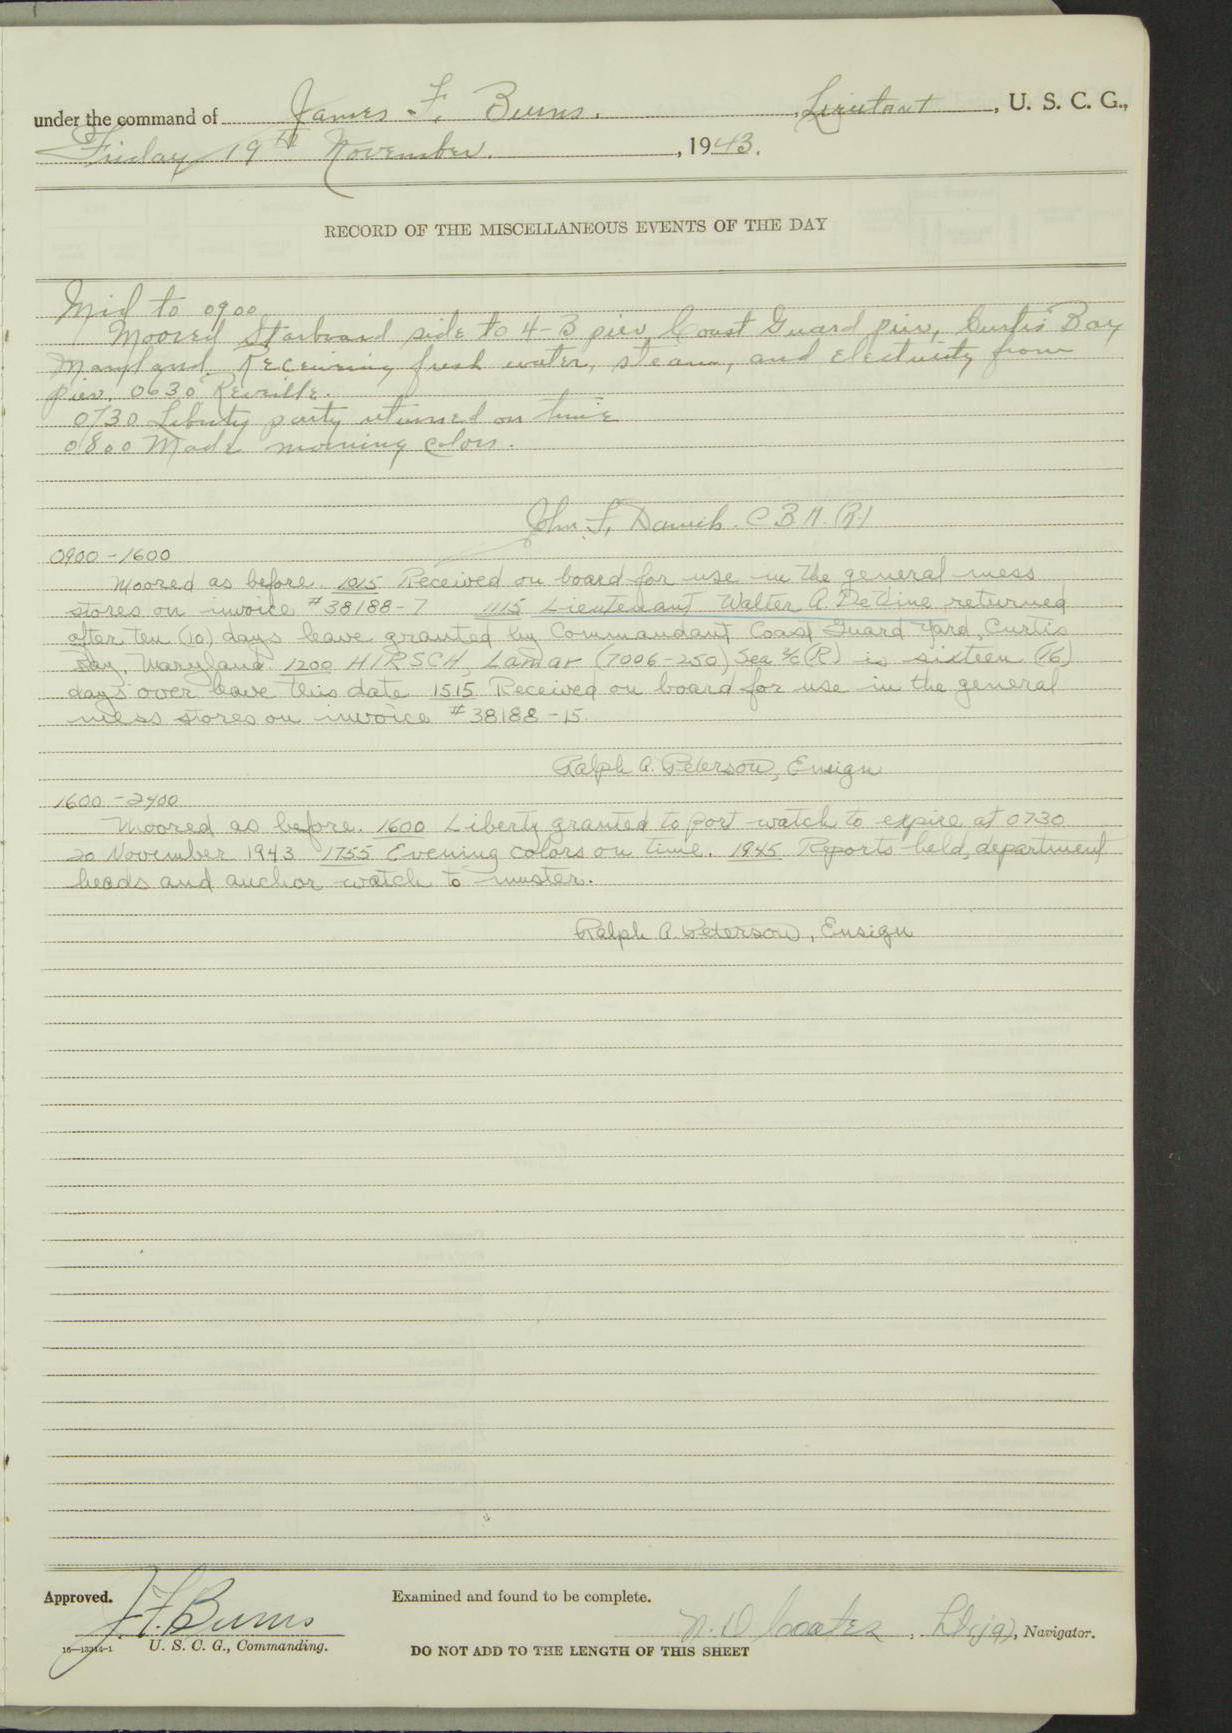 under the command of James F. Burns, Lieutant, U. S. C. G.,
Friday 19th November, 1943.
RECORD OF THE MISCELLANEOUS EVENTS OF THE DAY
Mid to 0900
Moored Starboard side to 4-B pier, Coast Guard pier, Curtis Bay
Maryland. Receiving fresh water, steam, and electricity from
pier. 0630 Reveille.
0730 Liberty party returned on time
0800 Made morning colors.
John F. C B M. (R)
0900 - 1600
Moored as before. 1015 Received on board for use in the general mess
stores on invoice # 38188-7 1115 Lieutenant Walter A. DeVine returned
after ten (10) days leave granted by Commandant Coast Guard Yard, Curtis
Bay, Maryland. 1200 HIRSCH, Lamar (7006-250) Sea 2/c (R) is sixteen (16)
days over leave this date 1515 Received on board for use in the general
mess stores on invoice # 38188-15.
Ralph A. Peterson, Ensign
1600 - 2400
Moored as before. 1600 Liberty granted to port watch to expire at 0730
20 November 1943 1755 Evening colors on time. 1945 Reports held, department
heads and anchor watch to muster.
Ralph A. Peterson, Ensign
Approved. Examined and found to be complete.
J F Burns N. D Coates, Lt(jg), Navigator.
U. S. C. G., Commanding. DO NOT ADD TO THE LENGTH OF THIS SHEET